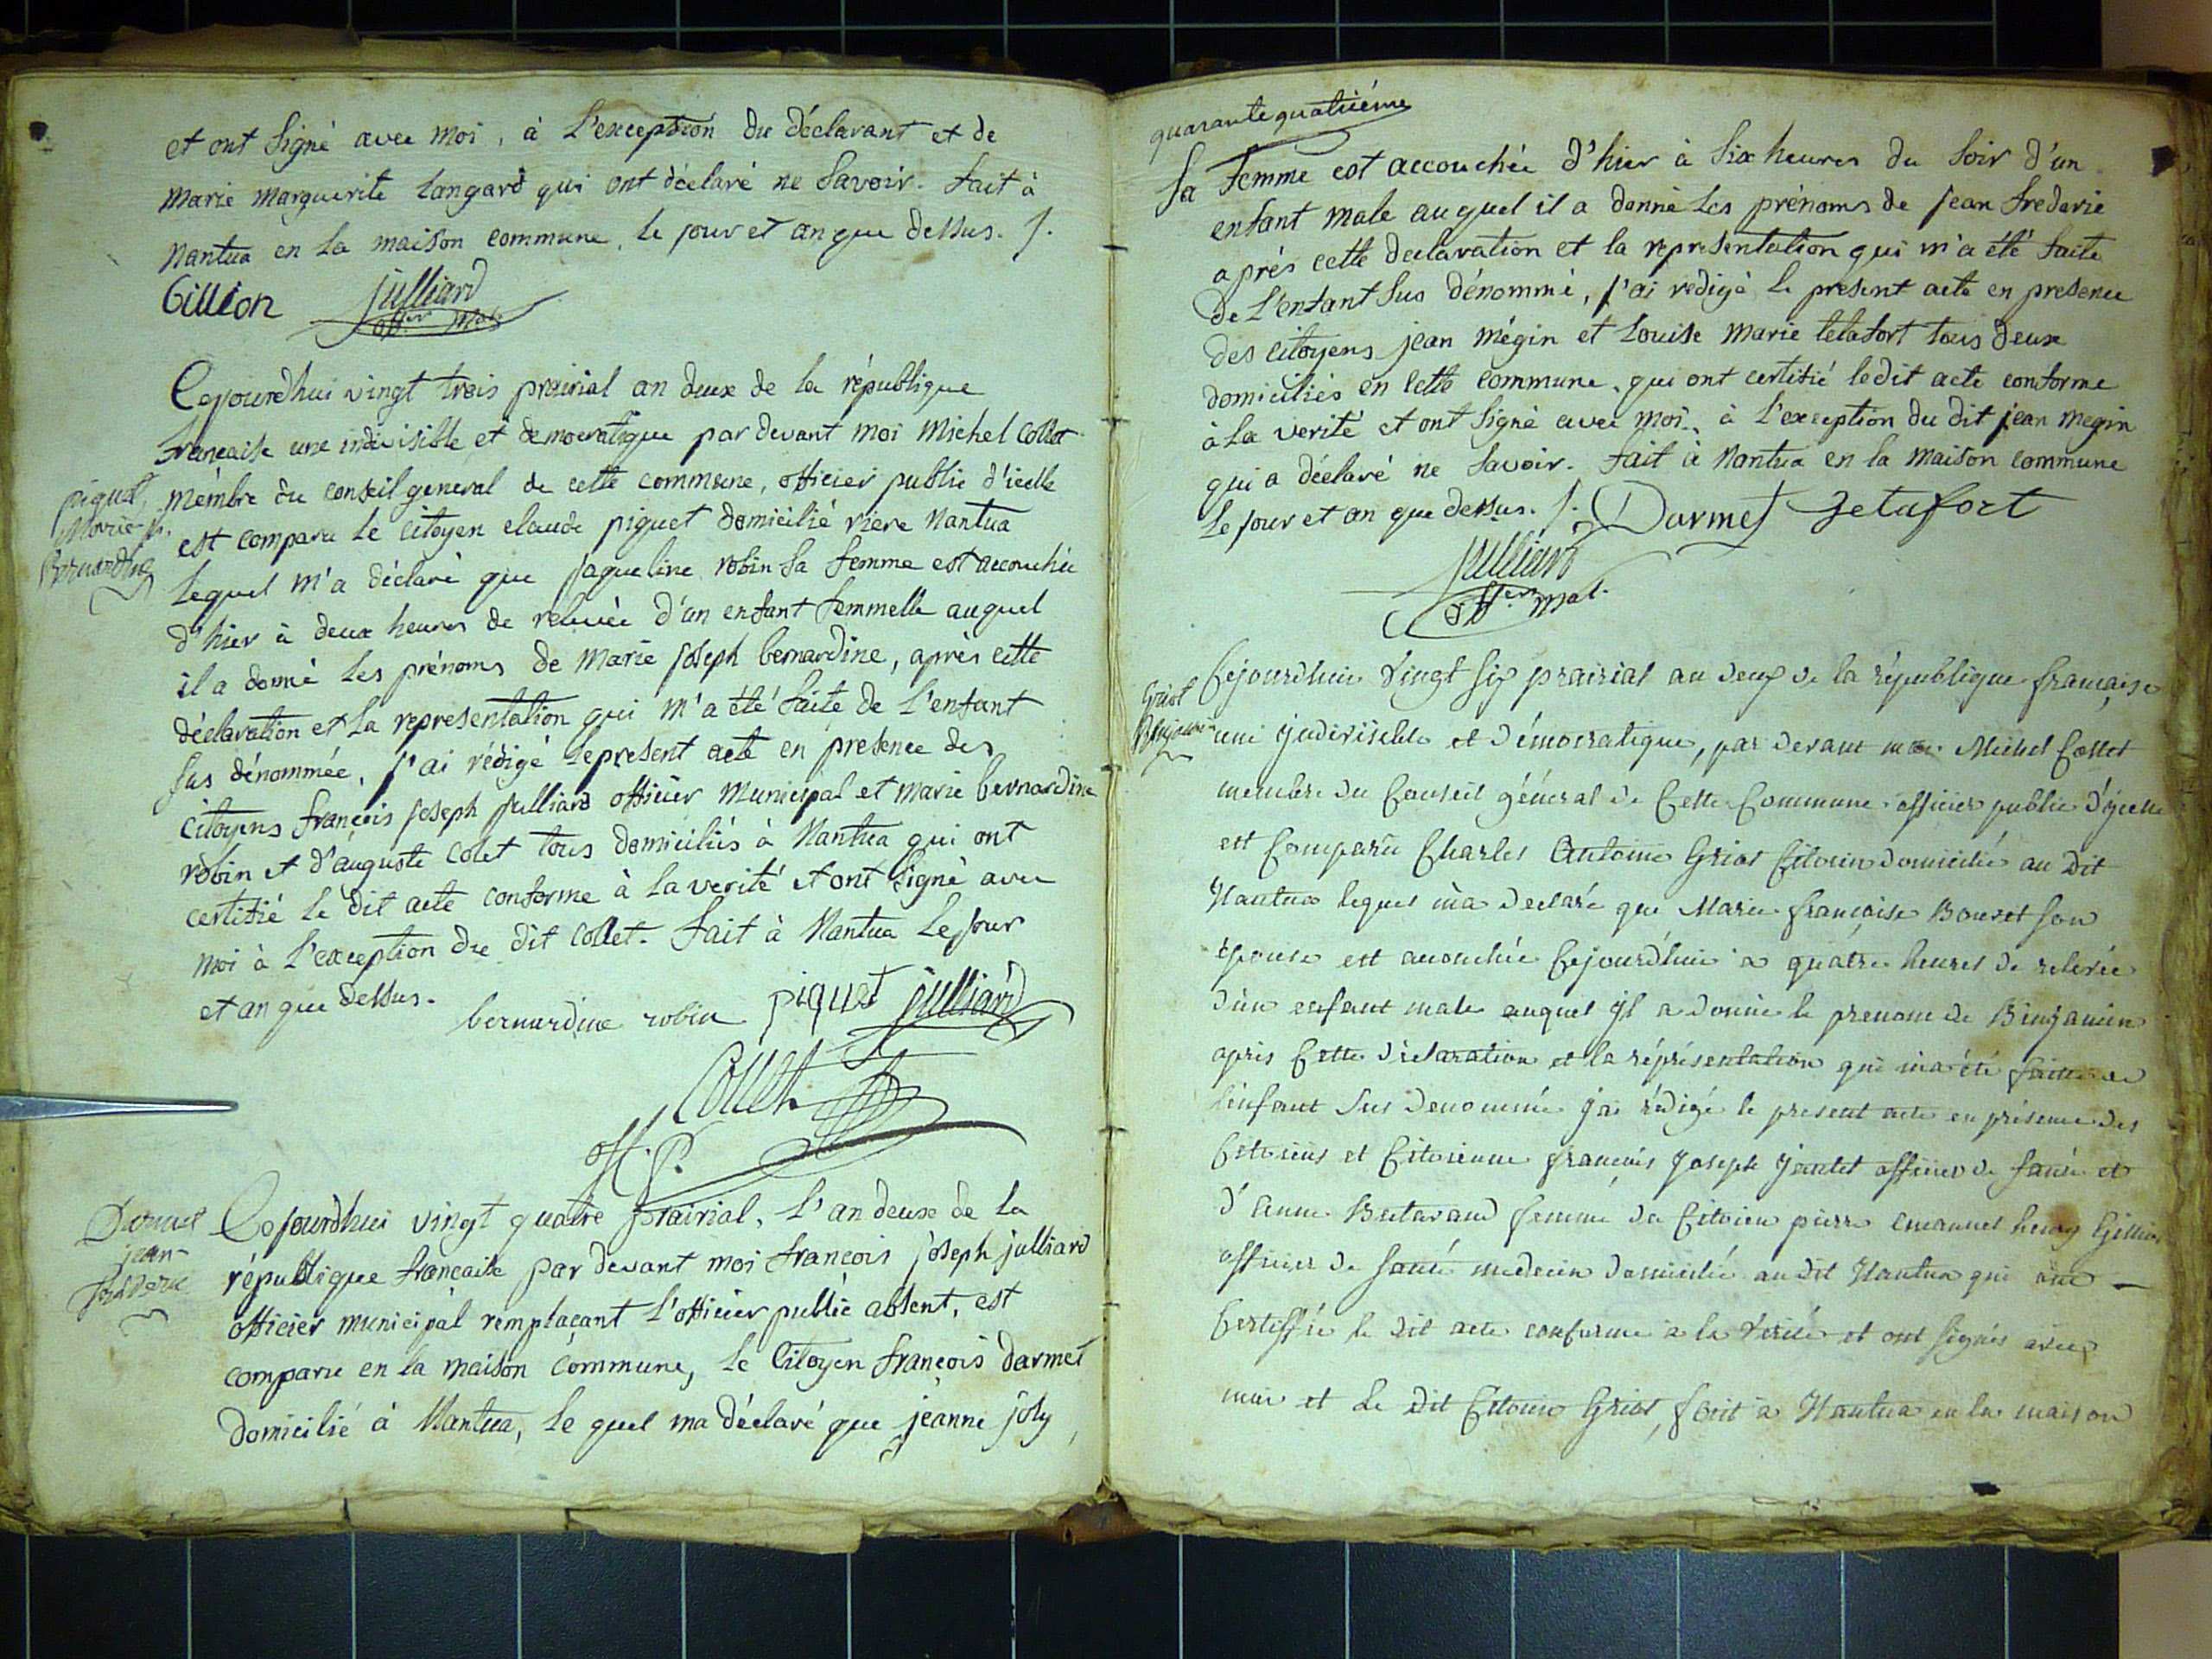 et ont signé avec moi, à l'exception du déclarant et de
marie marguerite Langard qui ont déclaré ne savoir. fait à
nantua en la maison commune, le jour et an que dessus. /.
Gillion julliard
off.er m.al
Cejourdhui vingt trois prairial an deux de la république
francaise une indivisible et democratique par devant moi Michel collet
piquet
Marie j.
Bernardine
mémbre du conseil general de cette commune, officier public d'icelle
est comparu le citoyen claude piquet domicilié riere nantua
lequel m'a déclaré que jaqueline robin sa femme est accouchée
d'hier à deux heures de relevée d'un enfant femmelle auquel
il a donné les prénoms de marie joseph bernardine, après cette
déclaration et la representation qui m'a été faite de l'enfant
sus dénommée, j'ai rédigé le present acte en presence des
citoyens françois joseph julliard officier municipal et marie bernardine
robin et d'auguste colet tous domiciliés à Nantua qui ont
certifié le dit acte conforme à la verité et ont signé avec
moi à l'exception du dit collet. fait à Nantua le jour
et an que dessus.
bernardine robin piquet julliard
Collet
off. P.
Darmet
jean
frederic
Cejourdhui vingt quatre prairial, l'an deux de la
république francaise par devant moi francois joseph julliard
officier municipal remplaçant l'officier public absent, est
comparu en la maison commune, le citoyen françois darmet
domicilié à Nantua, le quel ma déclaré que jeanne joly
quarante quatriéme
sa femme est accouchée d'hier à six heures du soir d'un
enfant male auquel il a donné les prénoms de jean frederic
après cette declaration et la representation qui m'a été faite
de l'enfant sus dénommé, j'ai redigé le present acte en presence
des citoyens jean mégin et louise marie letafort tous deux
domiciliés en cette commune, qui ont certifié ledit acte conforme
à la verité et ont signé avec moi, à l'exception du dit jean megin
qui a déclaré ne savoir. fait à nantua en la maison commune
le jour et an que dessus. /. Darmet Letafort
julliard
off.er m.al
Griot
Benjamin
Cejourdhui vingt six prairial an deux de la république française
une indivisible et démocratique, par devant moi Michel Collet
membre du Conseil général de Cette Commune officier public d'ycelle
est Comparu Charles Antoine Griot Citoien domicilié au dit
Nantua lequel m'a declaré que Marie françoise Bouvet son
épouse est accouchée Cejourdhui à quatre heures de relevée
d'un enfant male auquel jl a donné le prenom de Binjamin
apris Cette déclaration et la réprésentation qui m'a été faitte de
l'enfant sus denommé j'ai rédigé le present acte en présence des
Citoiens et Citoienne françois Joseph Jantet officier de santé et
d'anne femme du Citoien pierre emanuel henry Gillion
officier de santé medecin domicilié au dit Nantua qui ont
Certiffié le dit acte conforme à la vérité et ont signés avec
moi et le dit Citoien Griot, fait à Nantua en la maison